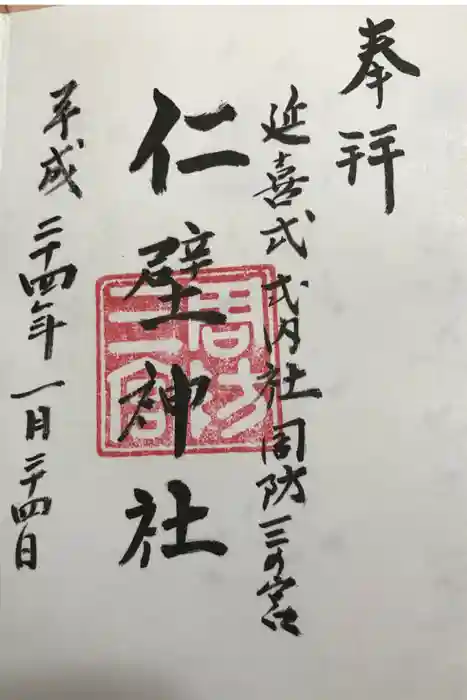 奉拝
延喜式式内社周防三の宮
仁壁神社
平成二十四年一月二十四日
周防
三宮